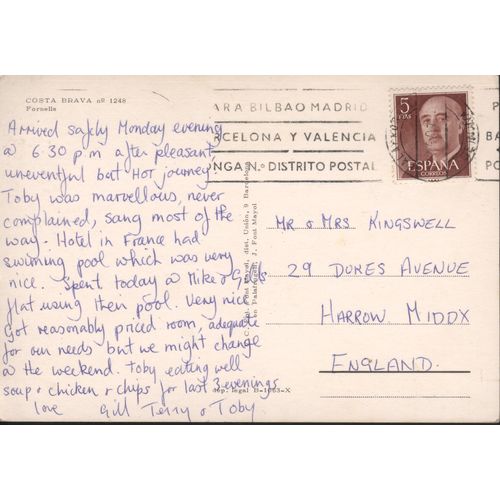 COSTA BRAVA nº 1248
Fornells
Arrived safely Monday evening
@ 6.30 p.m after pleasant
uneventful but Hot journey
Toby was marvellous, never
complained, sang most of the
way. Hotel in France had
swimming pool which was very
nice. Spent today @ Mike & Gill's
flat using their pool. Very nice
Got reasonably priced room, adequate
for our needs but we might change
@ the weekend. Toby eating well
soup & chicken & chips for last 3 evenings
love Gill Terry & Toby
ARA BILBAO MADRID
RCELONA Y VALENCIA
NGA N.º DISTRITO POSTAL
5
PTAS
ESPAÑA
CORREOS
MR & MRS KINGSWELL
29 DUKES AVENUE
HARROW MIDDX
ENGLAND.
dist. Unión, 9 Barcelona
en Palafrugell, J. Font Mayol
Dep. legal B-1063-X